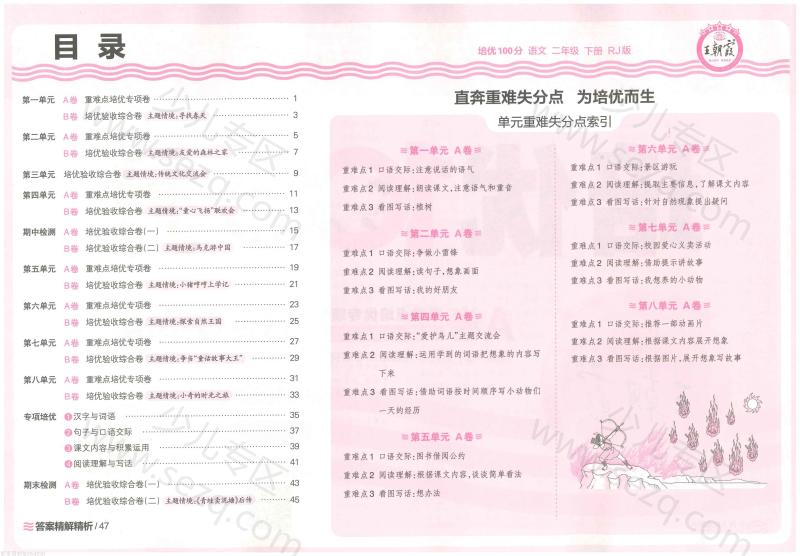 目录
培优100分 语文 二年级 下册 RJ版
王朝霞
第一单元 A卷 重难点培优专项卷 1
B卷 培优验收综合卷 主题情境:寻找春天 3
第二单元 A卷 重难点培优专项卷 5
B卷 培优验收综合卷 主题情境:友爱的森林之家 7
第三单元 培优验收综合卷 主题情境:传统文化交流会 9
第四单元 A卷 重难点培优专项卷 11
B卷 培优验收综合卷 主题情境:“童心飞扬”联欢会 13
期中检测 A卷 培优验收综合卷(一) 15
B卷 培优验收综合卷(二) 主题情境:马克游中国 17
第五单元 A卷 重难点培优专项卷 19
B卷 培优验收综合卷 主题情境:小猪哼哼上学记 21
第六单元 A卷 重难点培优专项卷 23
B卷 培优验收综合卷 主题情境:探索自然王国 25
第七单元 A卷 重难点培优专项卷 27
B卷 培优验收综合卷 主题情境:争当“童话故事大王” 29
第八单元 A卷 重难点培优专项卷 31
B卷 培优验收综合卷 主题情境:小奇的时光之旅 33
专项培优 1汉字与词语 35
2句子与口语交际 37
3课文内容与积累运用 39
4阅读理解与写话 41
期末检测 A卷 培优验收综合卷(一) 43
B卷 培优验收综合卷(二) 主题情境:《青蛙卖泥塘》后传 45
答案精解精析/47
直奔重难失分点 为培优而生
单元重难失分点索引
第一单元 A卷
重难点1 口语交际:注意说话的语气
重难点2 阅读理解:朗读课文,注意语气和重音
重难点3 看图写话:植树
第二单元 A卷
重难点1 口语交际:争做小雷锋
重难点2 阅读理解:读句子,想象画面
重难点3 看图写话:我的好朋友
第四单元 A卷
重难点1 口语交际:“爱护鸟儿”主题交流会
重难点2 阅读理解:运用学到的词语把想象的内容写
下来
重难点3 看图写话:借助词语按时间顺序写小动物们
一天的经历
第五单元 A卷
重难点1 口语交际:图书借阅公约
重难点2 阅读理解:根据课文内容,谈谈简单看法
重难点3 看图写话:想办法
第六单元 A卷
重难点1 口语交际:景区游玩
重难点2 阅读理解:提取主要信息,了解课文内容
重难点3 看图写话:针对自然现象提出疑问
第七单元 A卷
重难点1 口语交际:校园爱心义卖活动
重难点2 阅读理解:借助提示讲故事
重难点3 看图写话:我想养的小动物
第八单元 A卷
重难点1 口语交际:推荐一部动画片
重难点2 阅读理解:根据课文内容展开想象
重难点3 看图写话:根据图片,展开想象写故事
少儿专区
www.sezq.com